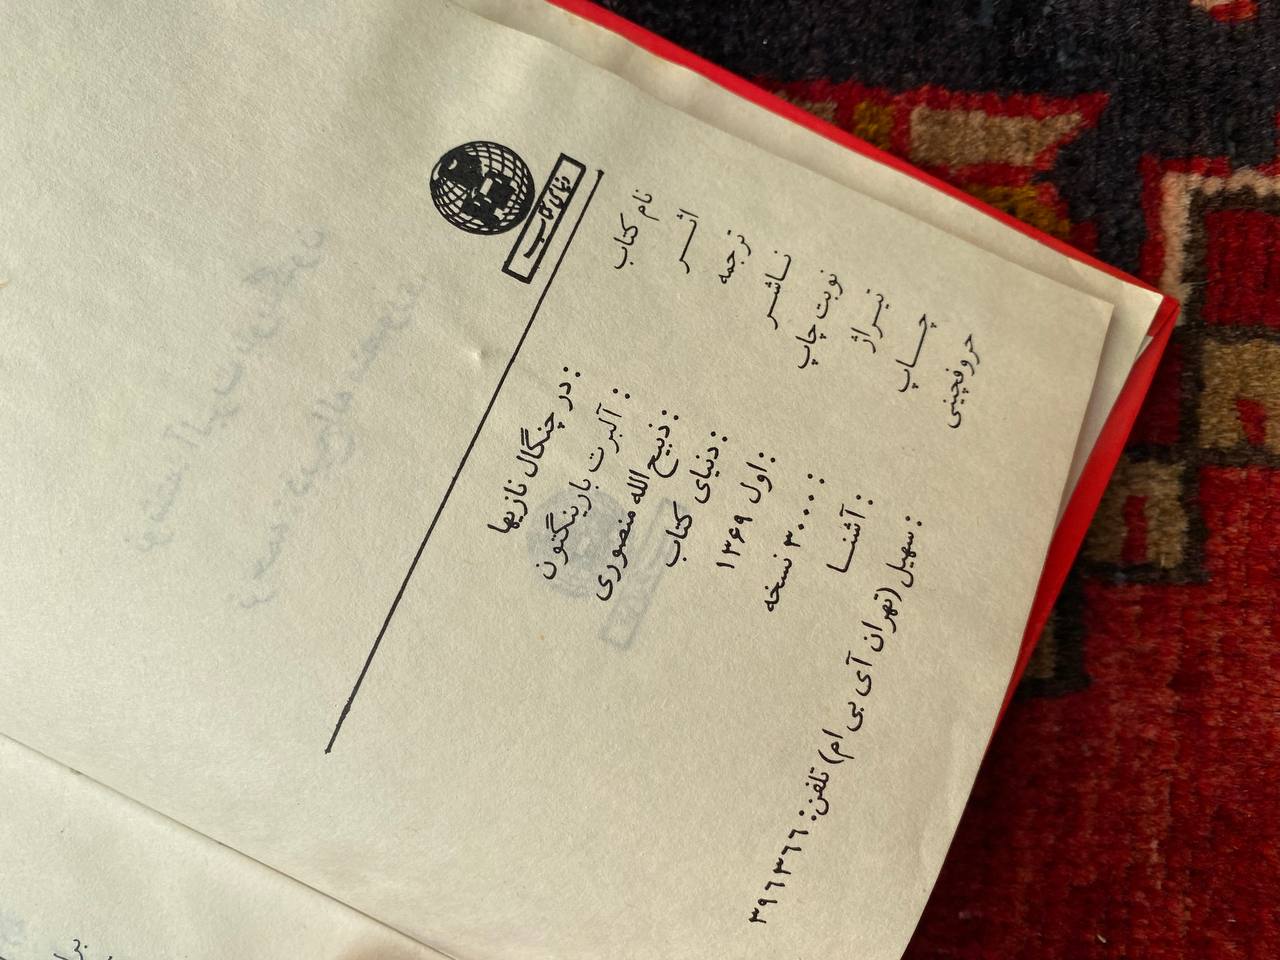 دنیای کتاب
نام کتاب : در چنگال نازیها
اثـــر : آلبرت بارینگتون
ترجمه : ذبیح الله منصوری
نـاشـر : دنیای کتاب
نوبت چاپ : اول ۱۳۶۹
تیـراژ : ۳۰۰۰ نسخه
چـــاپ : آشنـا
حروفچینی : سهیل (تهران آی بی ام) تلفن: ۳۹۶۳۶۶